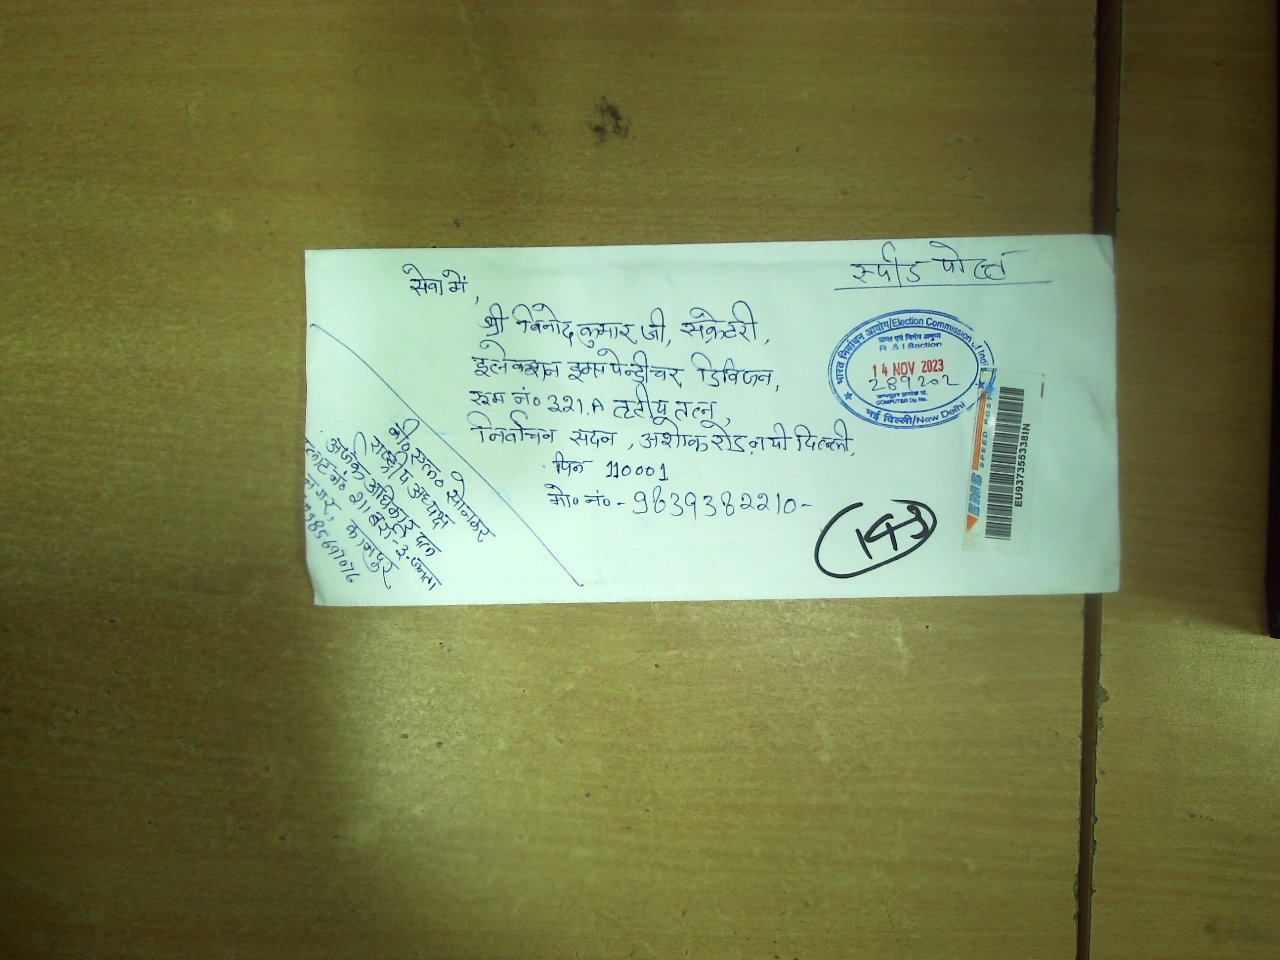 स्पीड पोस्ट
सेवा में,
श्री विनोद कुमार जी, सेक्रेटरी,
इलेक्शन इक्सपेन्डीचर डिविजन,
रूम नं० 321.A तृतीय तल,
निर्वाचन सदन, अशोक रोड़ नयी दिल्ली,
पिन 110001
मो० नं० - 9839382210-
भारत निर्वाचन आयोग/Election Commission of India
R & I Section
14 NOV 2023
289202
COMPUTER Dy. No.
नई दिल्ली/New Delhi
EMS SPEED POST
EU937355338IN
143
सोनकर
राष्ट्रीय अध्यक्ष
अधिकार दल
नं० 211 बर्रा-3, जनता
नगर, कानपुर